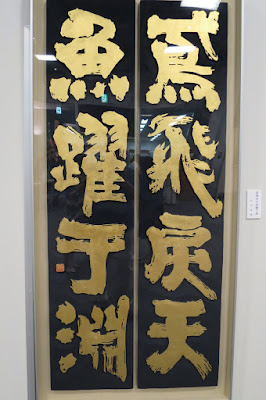 鳶飛戻天
魚躍于淵